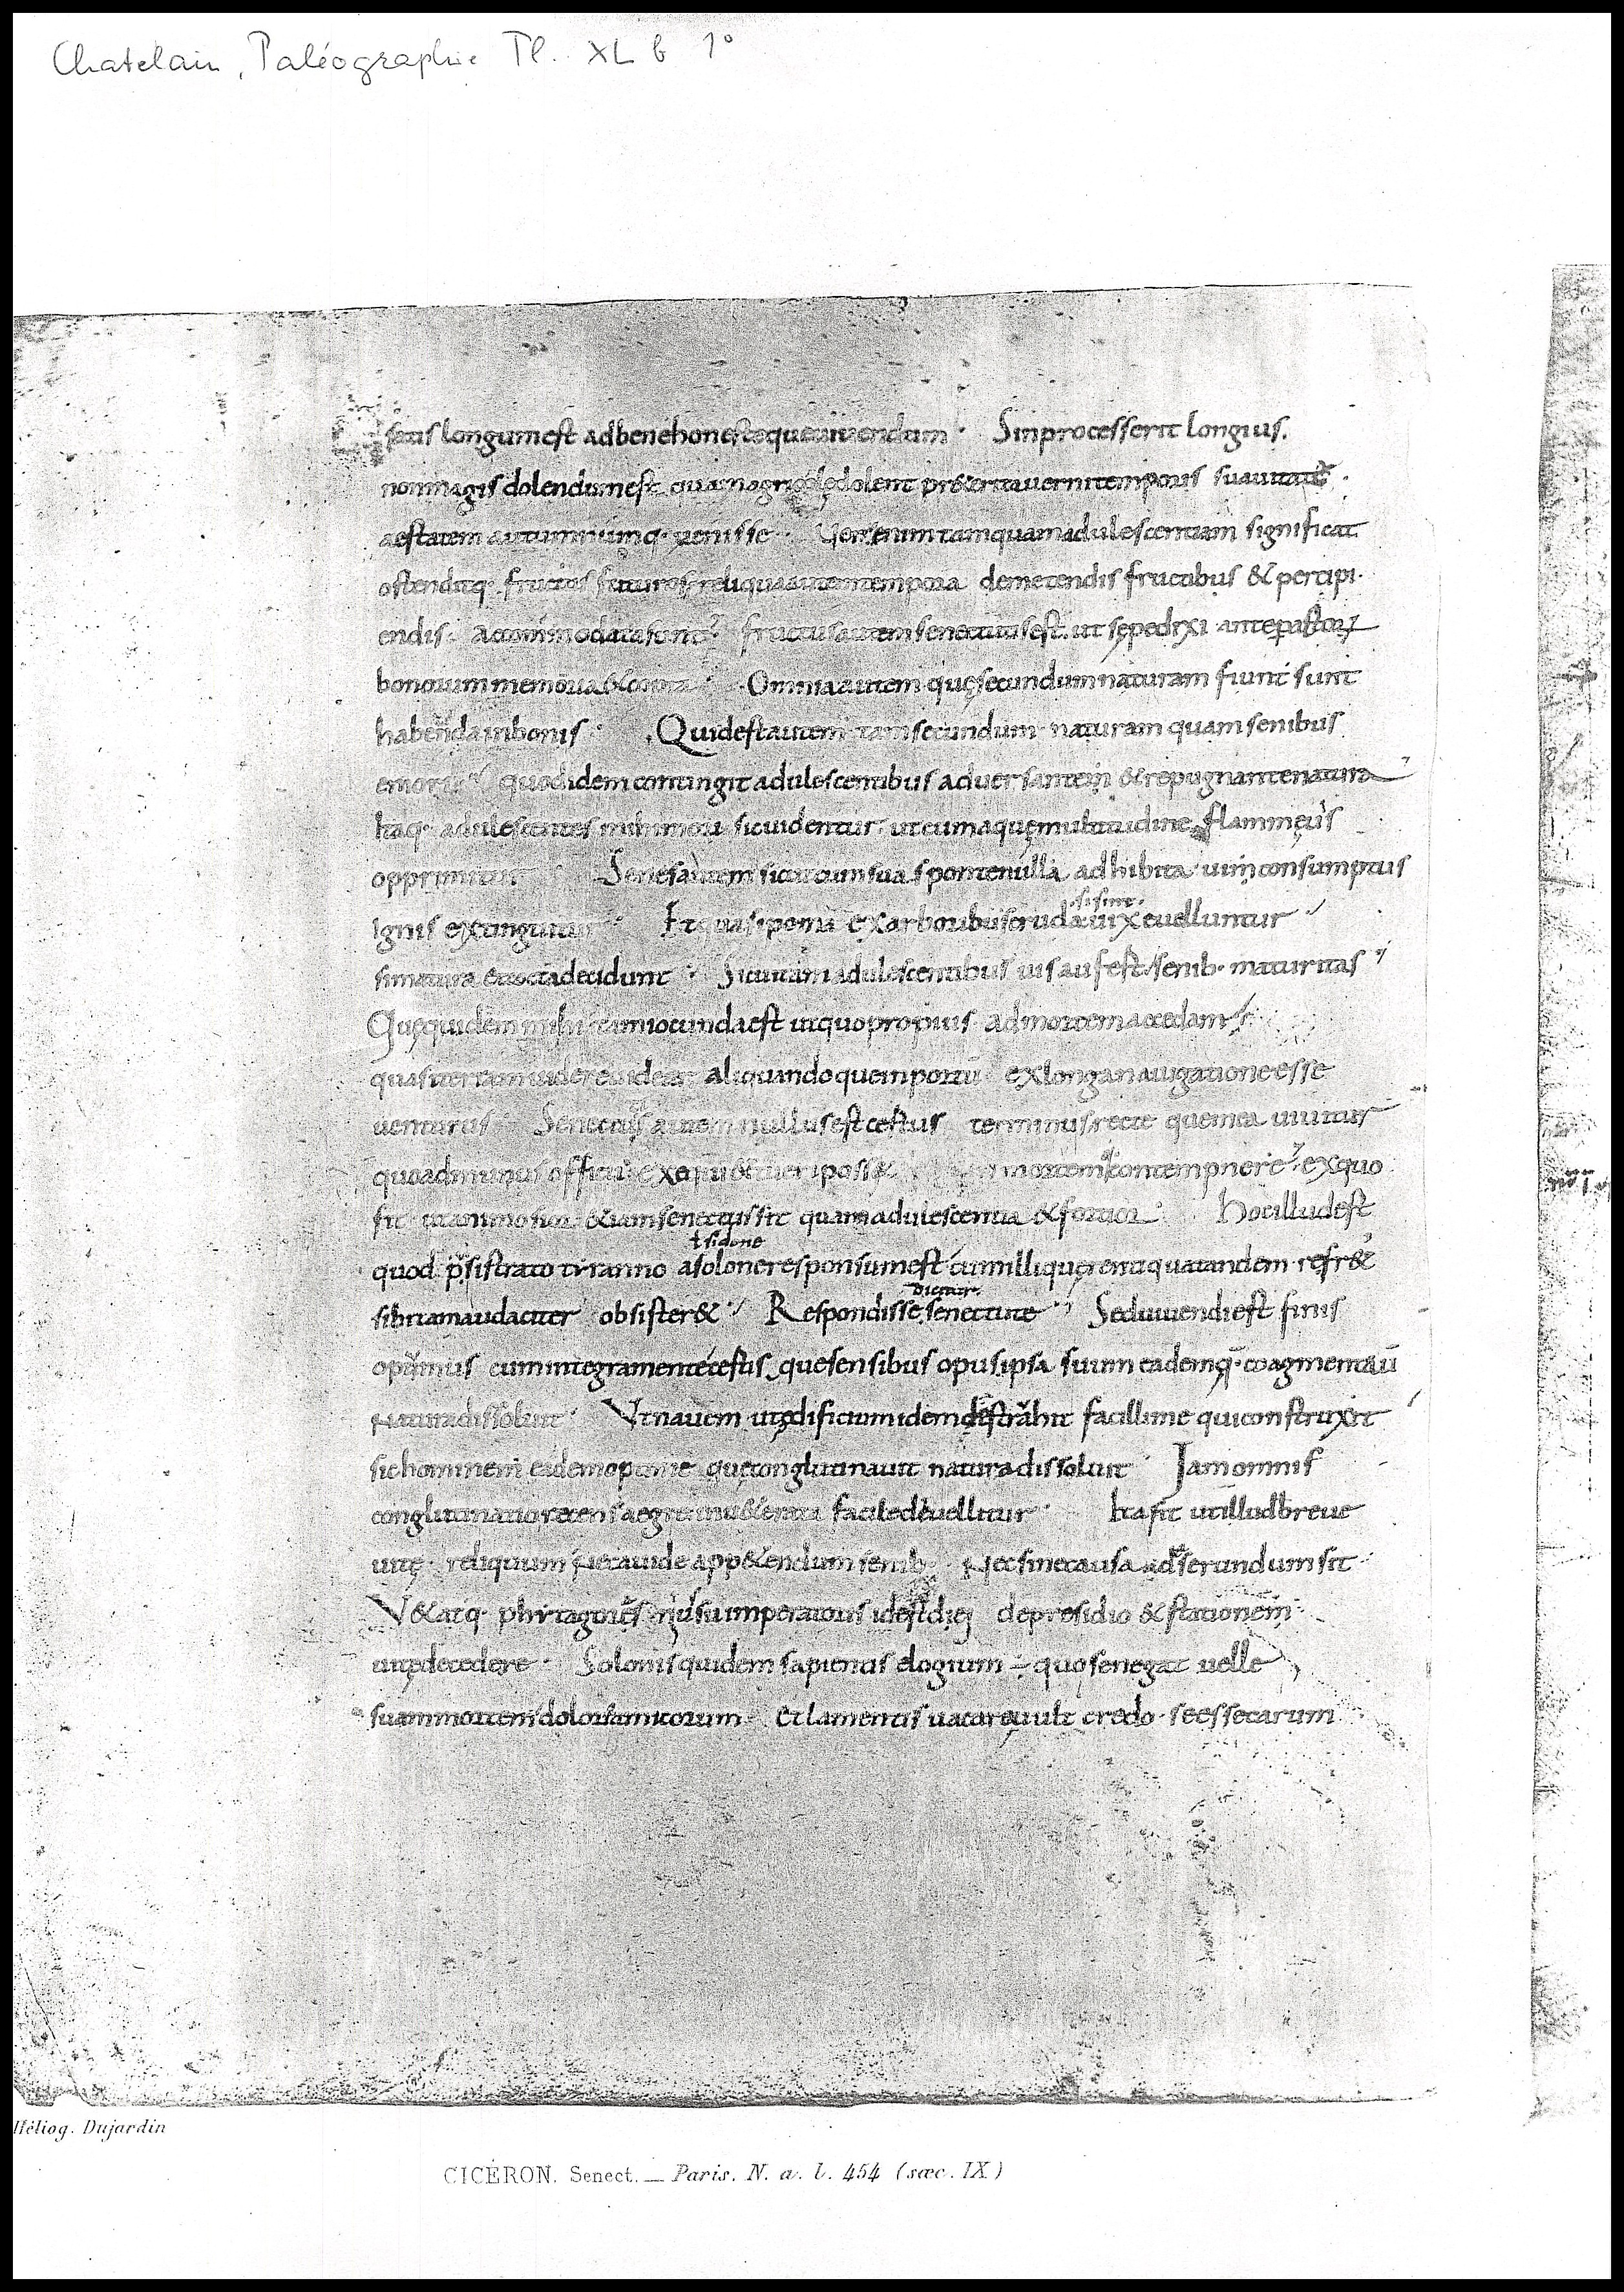 Chatelain, Paléographie Pl. XL b 1°
satis longum est ad bene honesteque uiuendum · Sin processerit longius.
non magis dolendum est quam agricolę dolent pr&erita uerni temporis suauitate ·
aestatem autumnumq· uenisse · Uer enim tamquam adulescentiam significat
ostenditq· fructus futuros reliqua autem tempora demetendis fructibus & percipi·
endis · accommodata sunt fructus autem senectutis est ut sępe dixi ante partorum
bonorum memoria & copia · Omnia autem quę secundum naturam fiunt sunt
habenda in bonis · Quid est autem tam secundum naturam quam senibus
emori quod idem contingit adulescentibus aduersante & repugnante natura
Itaq· adulescentes mihi mori sic uidentur ut cum aquę multitudine flammę uis
opprimitur Senes autem sicut cum sua sponte nulla adhibita ui consumptus
ignis extinguitur · Et quasi poma ex arboribus cruda ui x euelluntur
si sint
si matura et cocta decidunt · Sic uitam adulescentibus uis aufert senib· maturitas
Quę quidem mihi tam iocunda est ut quo propius ad mortem accedam
quasi terram uidere uidear aliquando quem portū ex longa nauigatione esse
uenturus Senectutis autem nullus est certus terminus recte quem ea uiuitur
quoad munus officii exequi & tueri possis mortem contempnere ex quo
fit ut animosior &iam senectus sit quam adulescentia & fortior · Hoc illud est
quod pisistrato tiranno a solone responsum est cum illi quęrenti qua tandem re fr&
ł sidone
sibi tam audaciter obsister& · Respondisse senectute · Sed uiuendi est finis
Dicitur
optimus cum integra mente certis que sensibus opus ipsa suum eademq· coagmentauit
Natura dissoluit · Ut nauem ut ędificium idem destrahit facillime qui construxit
sic hominem eadem optime quę conglutinauit natura dissoluit · Iam omnis
conglutinatio recens aegre inu&erata facile deuellitur · Ita fit ut illud breue
uitę reliquum Nec auide app&endum senib· Nec sine causa deserundum sit
V&atq· phitagoras iniussu imperatoris id est dięi de presidio & statione
uitę decedere · Solonis quidem sapientis elogium ÷ quo se negat uelle
suam mortem dolore amicorum · Et lamentis uacare uult credo · se esse carum
Héliog. Dujardin
CICÉRON. Senect. — Paris. N. a. l. 454 (sæc. IX)